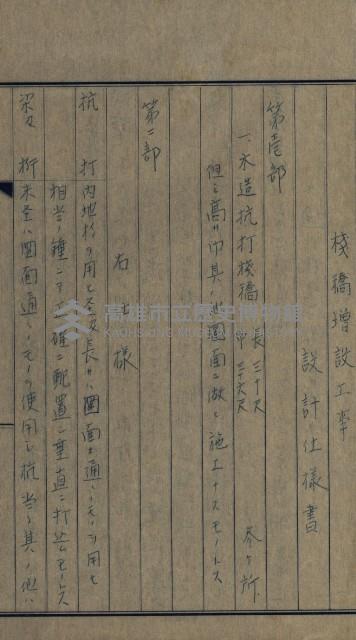 棧橋增設工事
設計仕様書
第壱部
一、木造杭打棧橋 長三十尺 巾三十六尺 参ヶ所
但シ高サ巾其ノ他圖面ニ倣ヒ施工ナスモノトス
第二部
右 仕様
杭 打 内地杉ヲ用ヒ末口長サハ圖面ニ通リノモノヲ用ヒ
相当ノ錘ニテ正確ニ配置シ垂直ニ打込モノトス
梁 桁 米呈ハ圖面通リノモノヲ使用シ杭当リ其ノ他ハ
高雄市立歷史博物館
KAOHSIUNG MUSEUM OF HISTORY